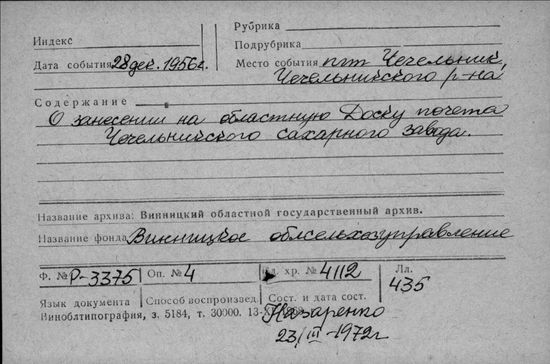 Рубрика
Индекс
Подрубрика
Дата события 28 дек. 1956 г.
Место события пгт Чечельник,
Чечельницкого р-на
Содержание
О занесении на областную Доску почета
Чечельницкого сахарного завода.
Название архива: Винницкий областной государственный архив.
Название фонда Винницкое облсельхозуправление
Ф. № Р-3375 Оп. № 4 Ед. хр. № 4112 Лл. 435
Язык документа Способ воспроизвед. Сост. и дата сост.
Виноблтипография, з. 5184, т. 30000.
Назаренко
23/III-1972г